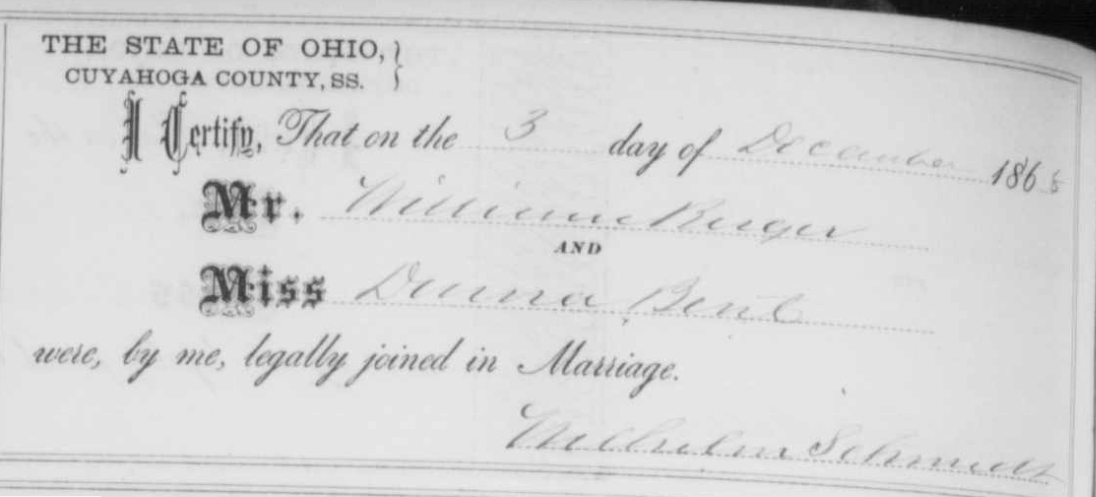 THE STATE OF OHIO,
CUYAHOGA COUNTY, SS.
I Certify, That on the 3 day of December 186
Mr. William
AND
Miss Bent
were, by me, legally joined in Marriage.
Wilhelm Schmidt